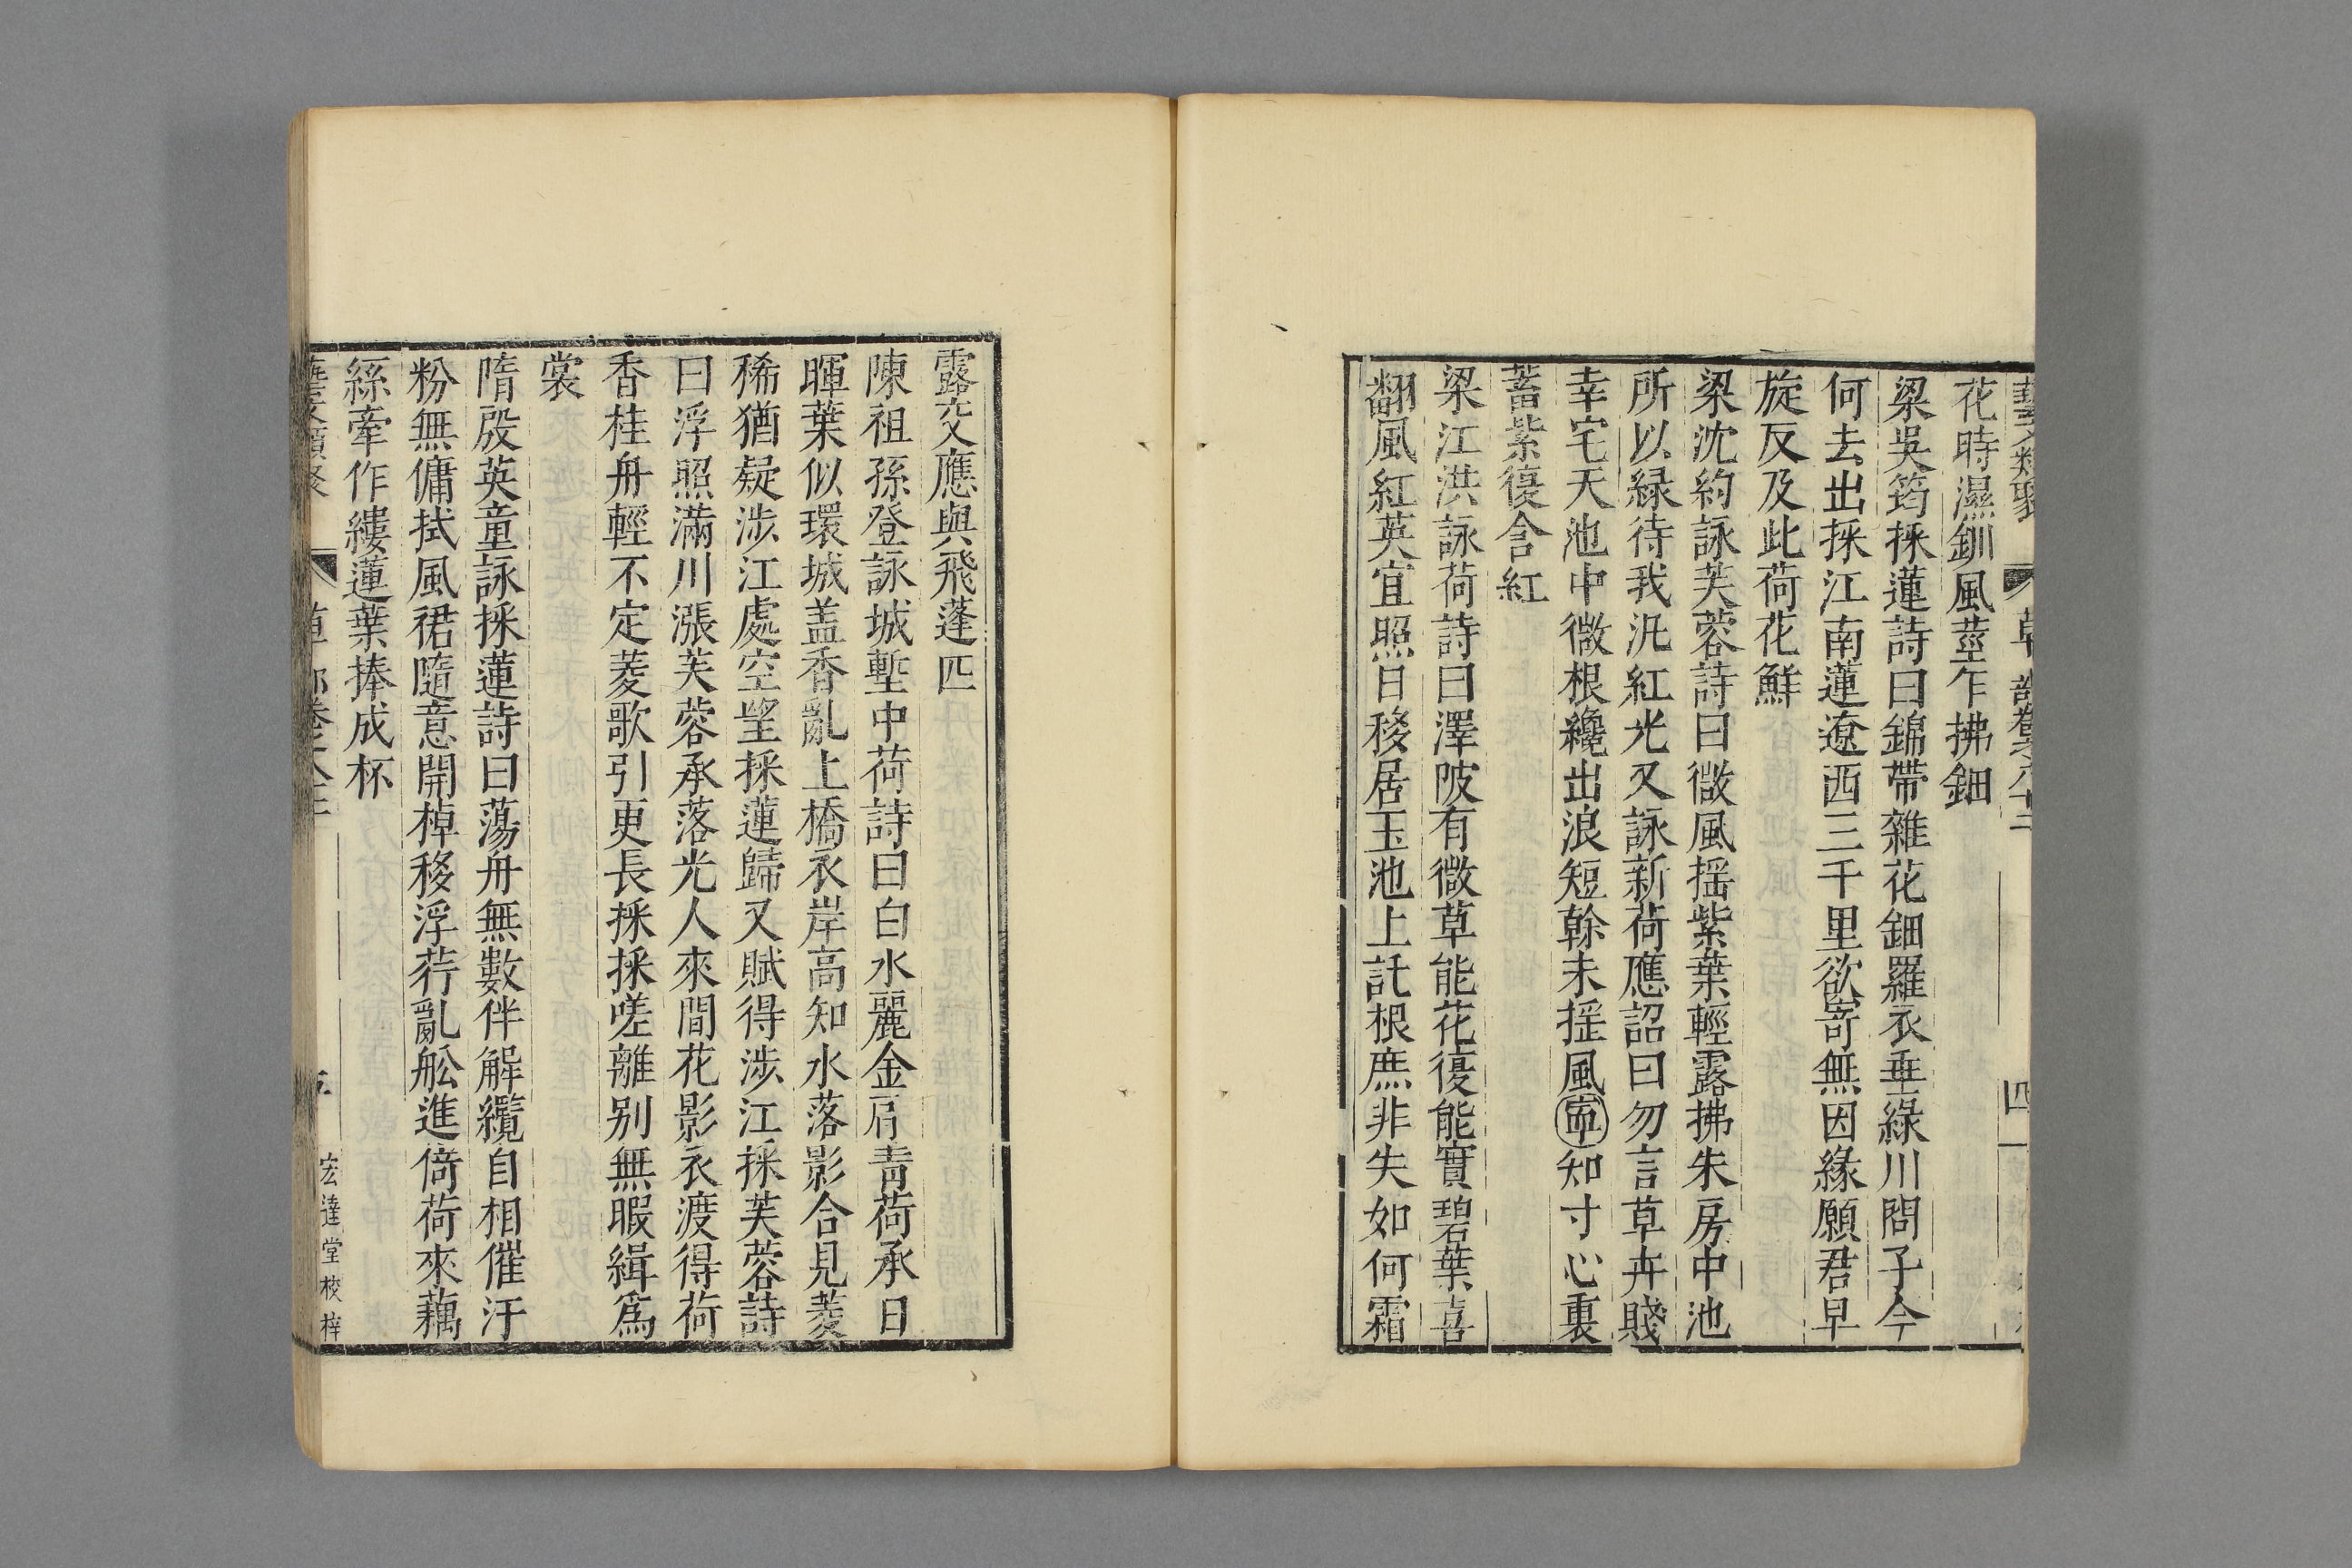 藝文類聚 草部卷八十二 四
花時濕釧風莖乍拂鈿
梁吳筠採蓮詩曰錦帶雜花鈿羅衣垂綠川問子今
何去出採江南蓮遼西三千里欲寄無因緣願君早
旋反及此荷花鮮
梁沈約詠芙蓉詩曰微風搖紫葉輕露拂朱房中池
所以緑待我汎紅光又詠新荷應詔曰勿言草卉賤
幸宅天池中微根纔出浪短榦未揺風寧知寸心裏
蓄紫復含紅
梁江洪詠荷詩曰澤陂有微草能花復能實碧葉喜
翻風紅英宜照日移居玉池上託根庶非失如何霜
露交應與飛蓬匹
陳祖孫登詠城塹中荷詩曰白水麗金扃青荷承日
暉葉似環城盖香亂上橋衣岸高知水落影合見菱
稀猶疑涉江處空望採蓮歸又賦得涉江採芙蓉詩
曰浮照滿川漲芙蓉承落光人來間花影衣渡得荷
香桂舟輕不定菱歌引更長採採嗟離别無暇緝爲
裳
隋殷英童詠採蓮詩曰蕩舟無數伴解纜自相催汗
粉無傭拭風裙隨意開棹移浮荇亂舩進倚荷來藕
絲牽作縷蓮葉捧成杯
藝文類聚 草部卷八十二 五 宏達堂校梓